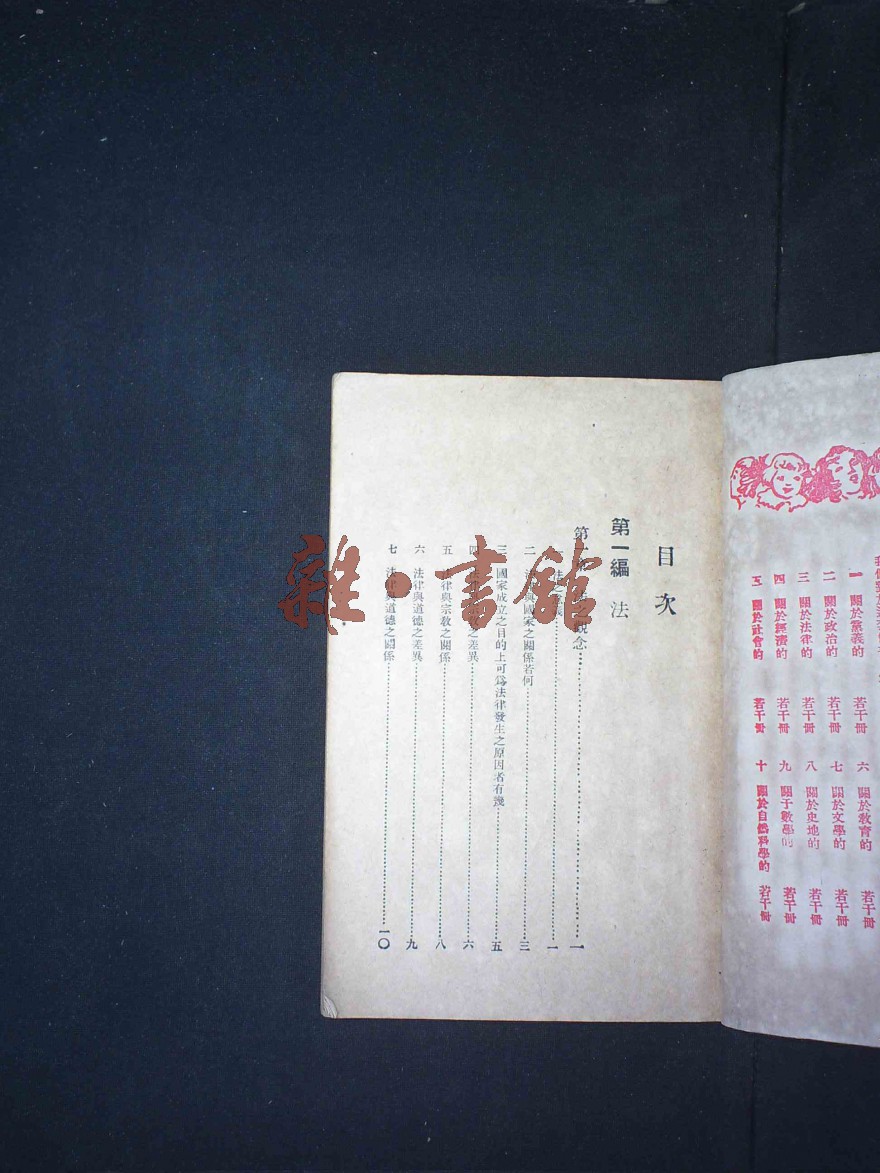 目次
第一編 法
第 觀念 一
一
二 國家之關係若何 三
三 國家成立之目的上可爲法律發生之原因者有幾 五
四 之差異 六
五 法律與宗教之關係 八
六 法律與道德之差異 九
七 法律與道德之關係 一〇
一 關於黨義的 若干冊
二 關於政治的 若干冊
三 關於法律的 若干冊
四 關於經濟的 若干冊
五 關於社會的 若干冊
六 關於教育的 若干冊
七 關於文學的 若干冊
八 關於史地的 若干冊
九 關于數學的 若干冊
十 關於自然科學的 若干冊
雜·書館